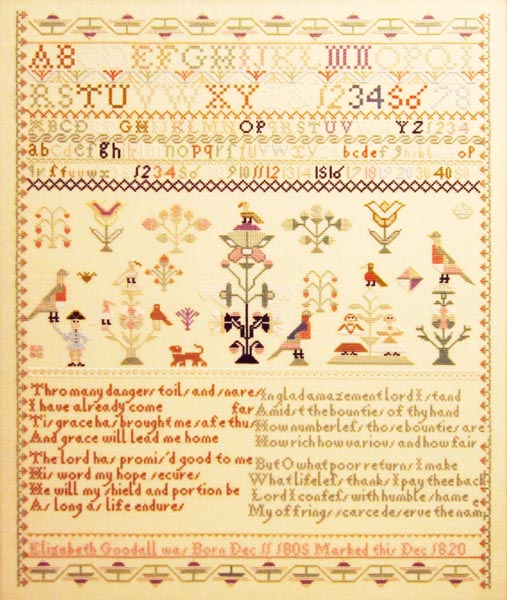 AB EFGHIJKL MN OPQ
RSTUVWXY 123456 78
ABCD GH IKLMN OP RSTUV YZ 1234
ab def gh kl mno pqrſtuvwxy bcdef ghikl op
qrſtuvwx 123456 9 10 11 12 13 14 15 16 17 18 19 20 30 40 50
Thro many dangers toils and snares
I have already come far
Tis grace has brought me safe thus
And grace will lead me home
The lord has promis'd good to me
His word my hope secures
He will my shield and portion be
As long as life endures
In glad amazement lord I stand
Amidst the bounties of thy hand
How numberleſs those bounties are
How rich how various and how fair
But O what poor returns I make
What lifeleſs thanks I pay thee back
Lord I confeſs with humble shame
My offrings scarce deserve the name
Elizabeth Goodall was Born Dec 11 1805 Marked this Dec 1820